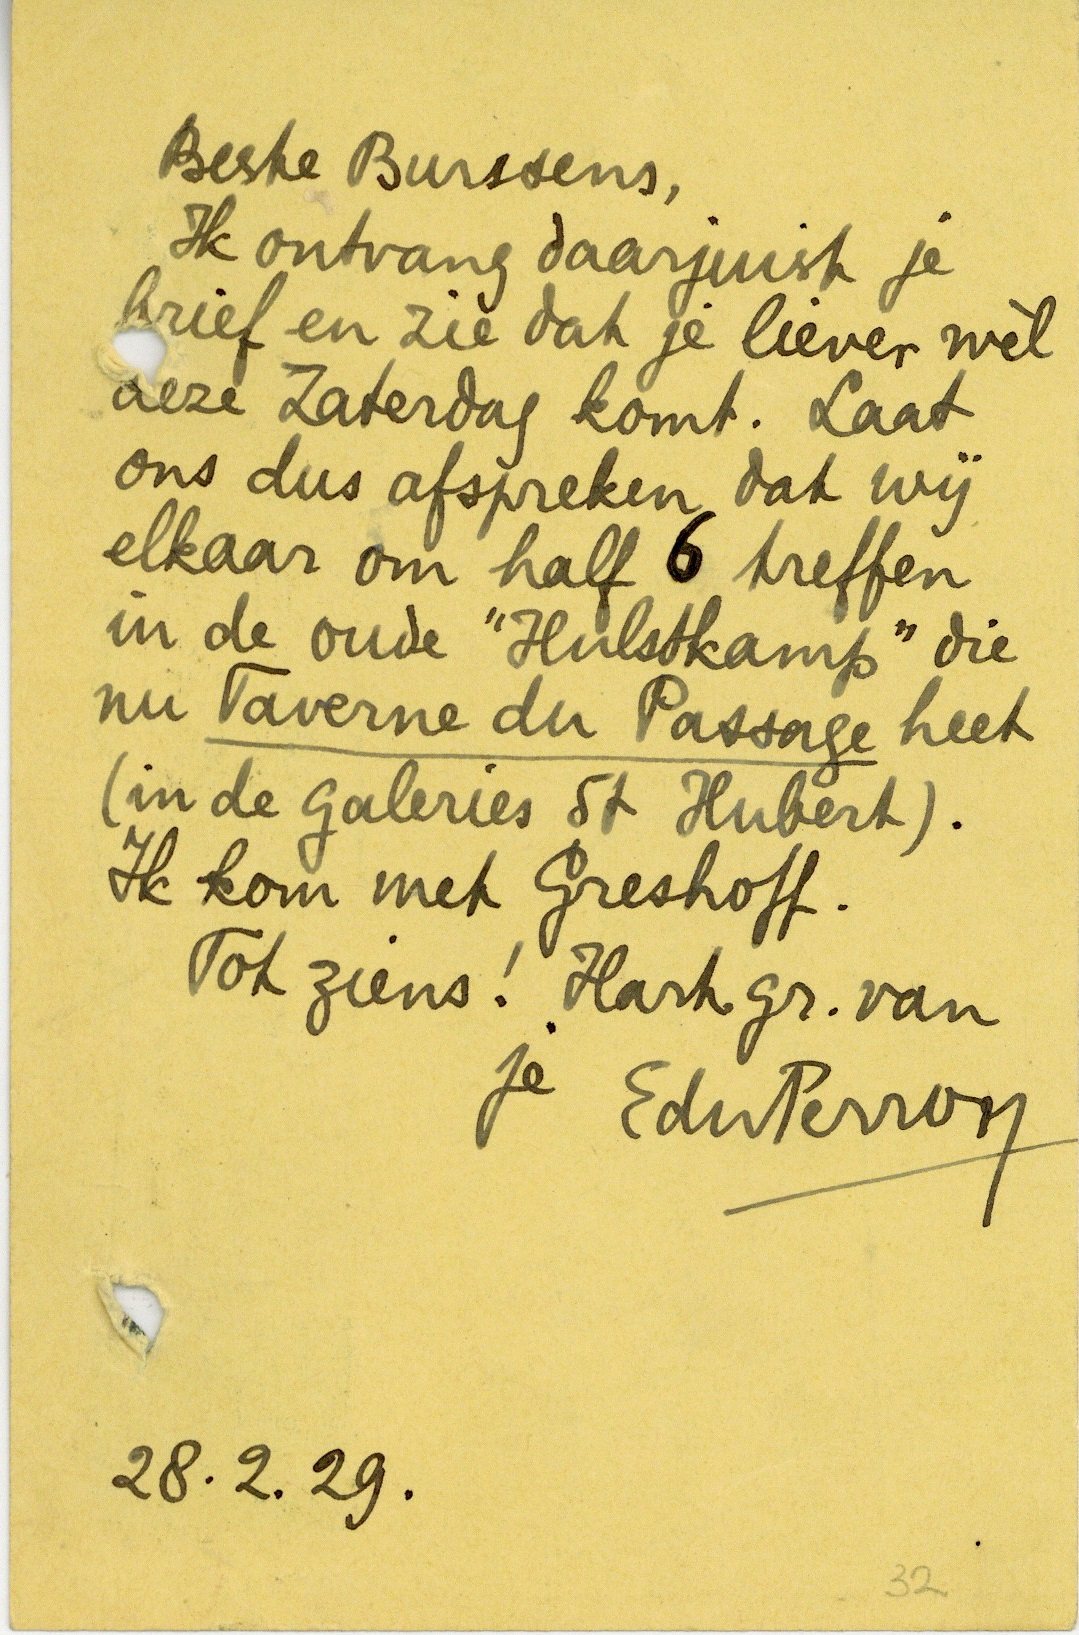 Beste Burssens,
Ik ontvang daarjuist je
brief en zie dat je liever wèl
deze Zaterdag komt. Laat
ons dus afspreken dat wij
elkaar om half 6 treffen
in de oude "Hulstkamp" die
nu Taverne du Passage heet
(in de Galeries St Hubert).
Ik kom met Greshoff.
Tot ziens! Hart. gr. van
je EduPerron
28.2.29.
32